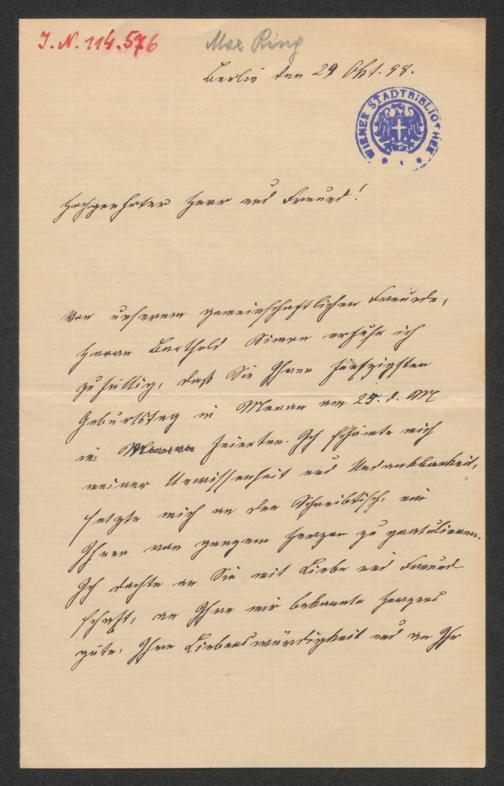 J. N. 114.576
Max Ring
Berlin den 29 Okt. 98.
WIENER STADTBIBLIOTHEK
Hochgeehrter Herr und Freund!
Von unserem gemeinschaftlichen Freunde,
Herrn Barthold erfuhr ich
zufällig, daß Sie Ihren
Geburtstag in Meran am 25. d. M
im feierten. Ich schämte mich
meiner Unwissenheit und Undankbarkeit,
setzte mich an den Schreibtisch, um
Ihnen von ganzem Herzen zu gratulieren.
Ich dachte an Sie mit Liebe und Freund
schaft, an Ihre mir bekannte Herzens
güte, Ihre Liebenswürdigkeit und an Ihr